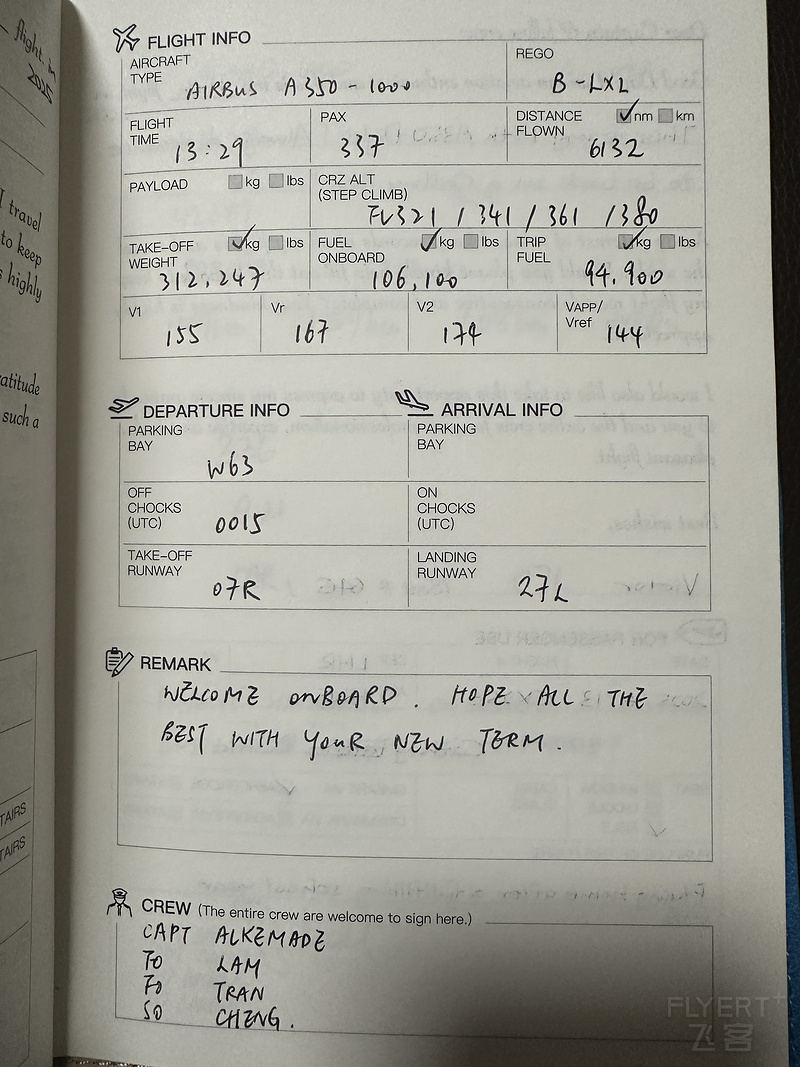 flight. in
2025
I travel
to keep
s highly
atitude
such a
TAIRS
TAIRS
FLIGHT INFO
AIRCRAFT TYPE AIRBUS A350-1000
REGO B-LXL
FLIGHT TIME 13:29
PAX 337
DISTANCE FLOWN ✓nm km 6132
PAYLOAD kg lbs
CRZ ALT (STEP CLIMB) FL321 / 341 / 361 / 380
TAKE-OFF WEIGHT ✓kg lbs 312,247
FUEL ONBOARD ✓kg lbs 106,100
TRIP FUEL ✓kg lbs 94,900
V1 155
Vr 167
V2 174
VAPP/ Vref 144
DEPARTURE INFO
PARKING BAY W63
OFF CHOCKS (UTC) 0015
TAKE-OFF RUNWAY 07R
ARRIVAL INFO
PARKING BAY
ON CHOCKS (UTC)
LANDING RUNWAY 27L
REMARK
WELCOME ONBOARD. HOPE ALL THE
BEST WITH YOUR NEW TERM.
CREW (The entire crew are welcome to sign here.)
CAPT ALKEMADE
FO LAM
FO TRAN
SO CHENG.
FLYERT+
飞客